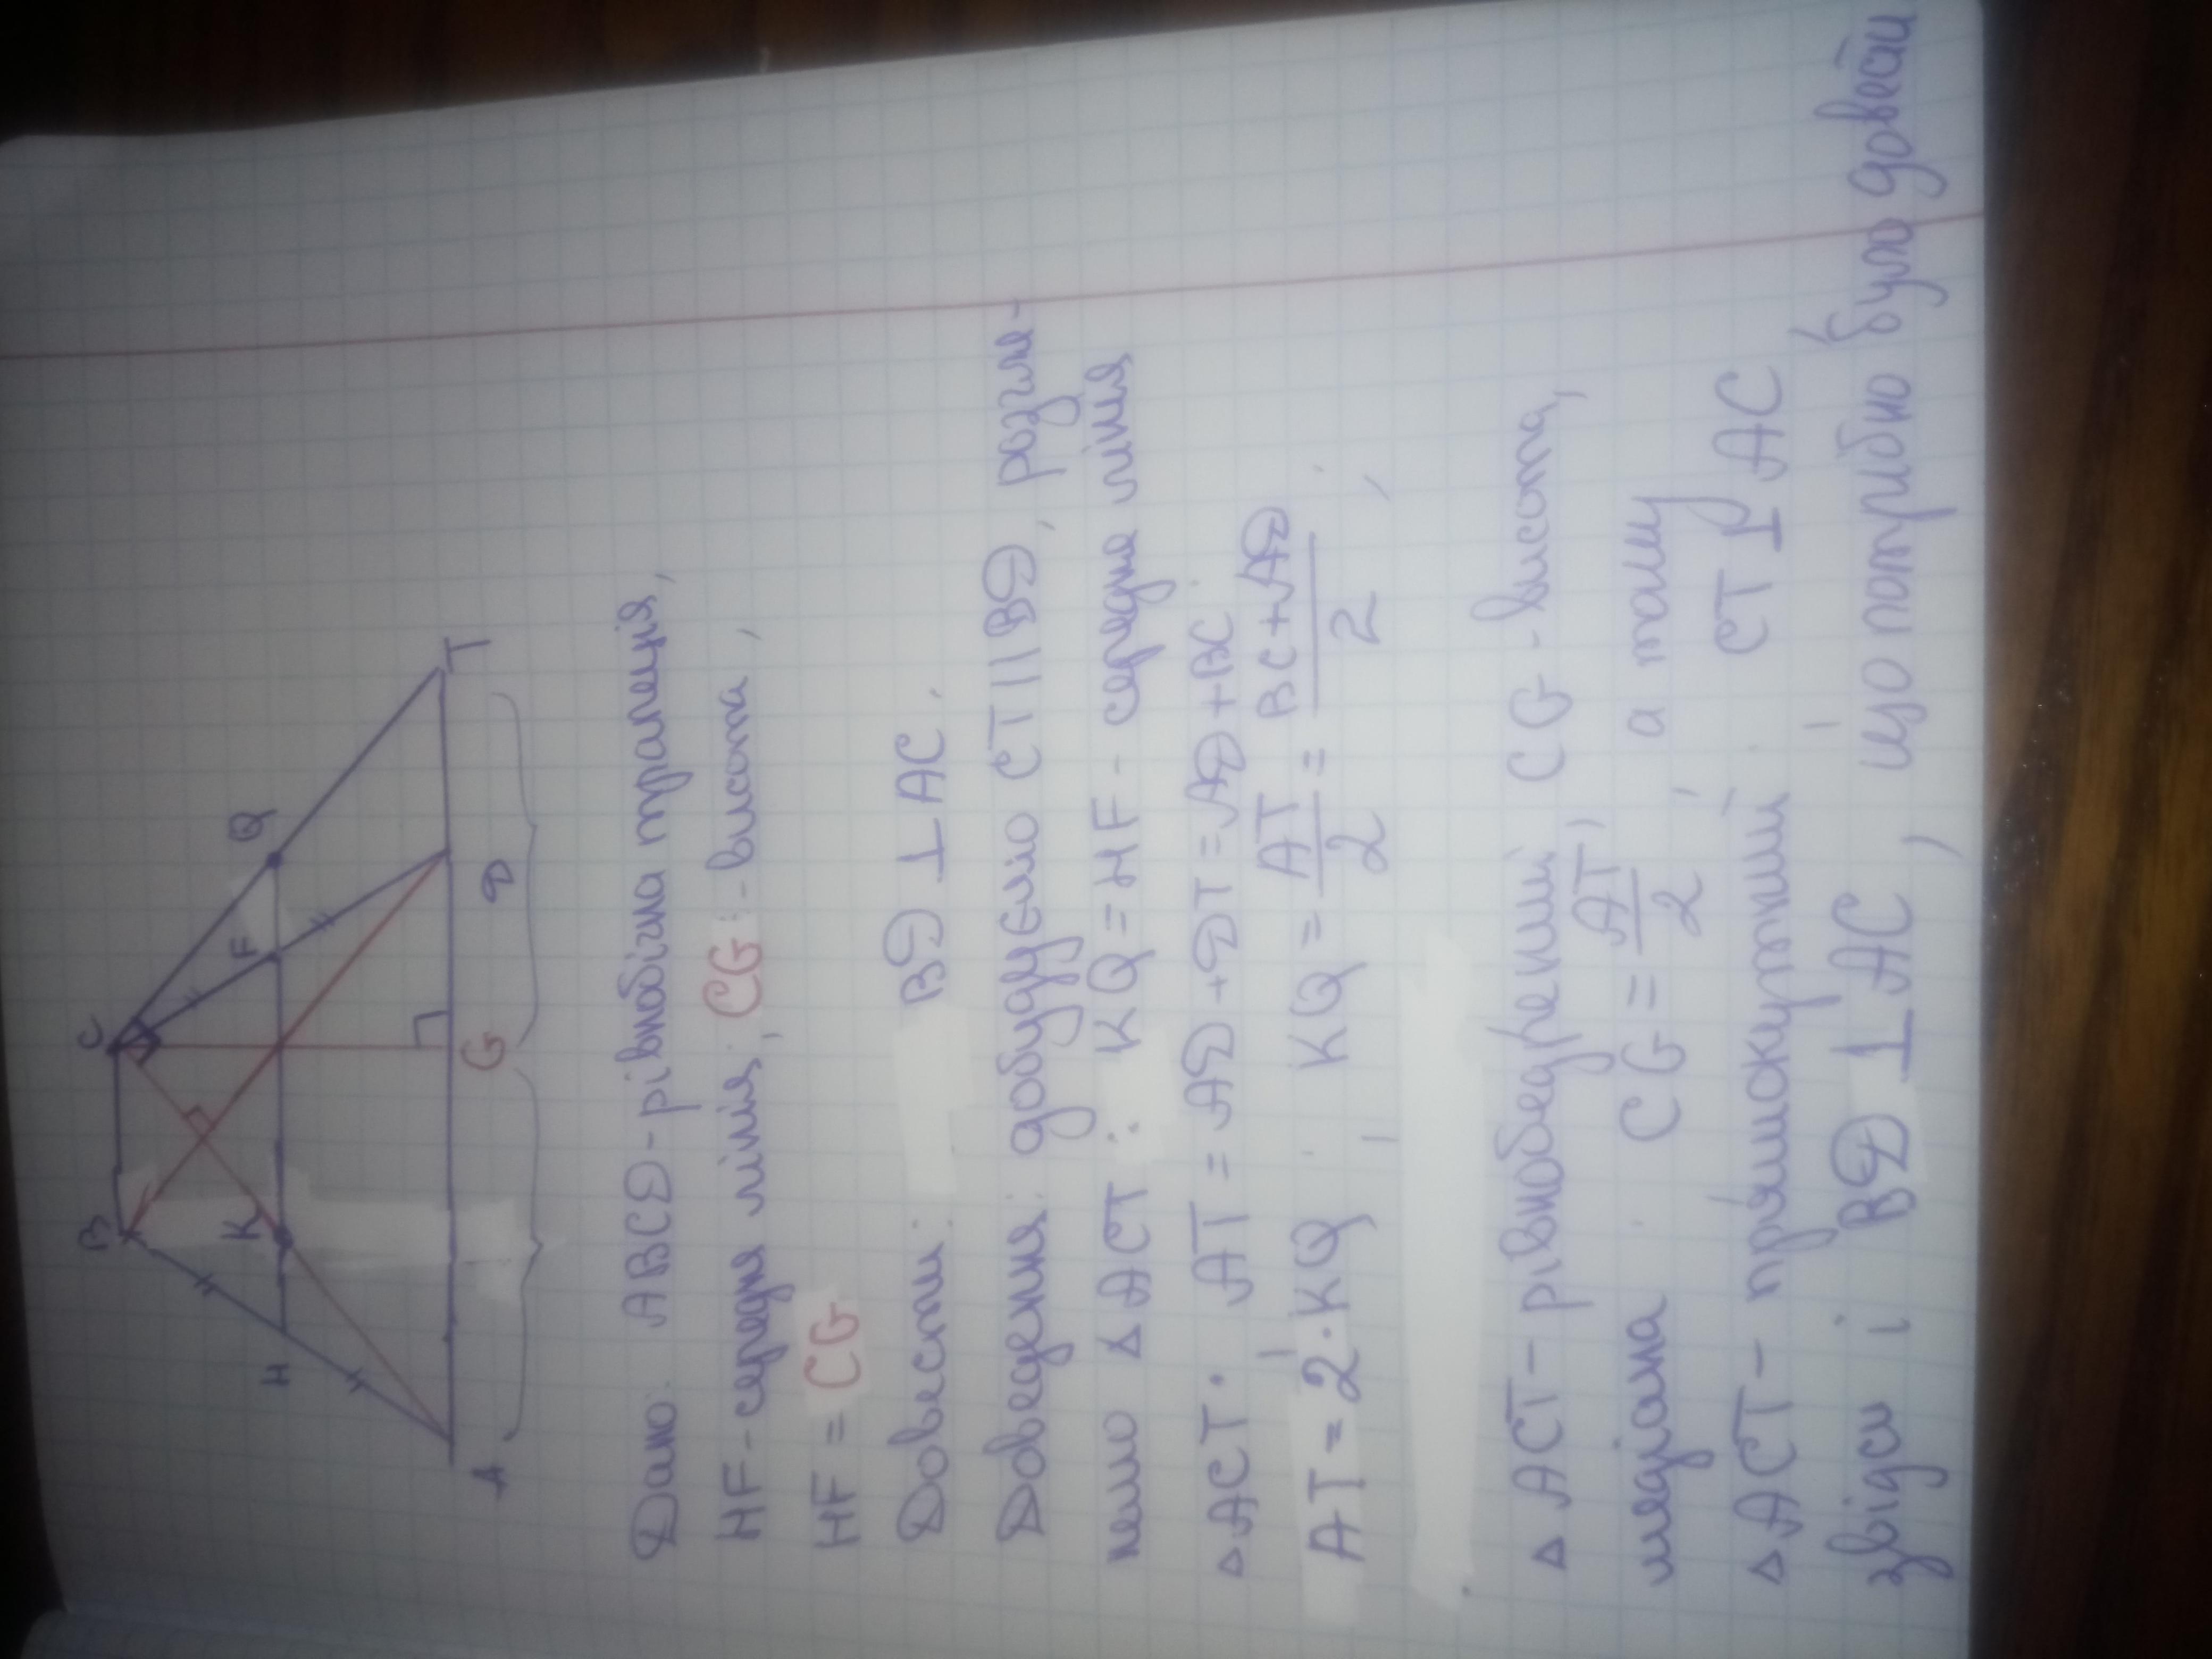 B C
H K F Q
A G D T
Дано: ABCD - рівнобічна трапеція,
HF - середня лінія, CG - висота,
HF = CG
Довести: BD ⊥ AC.
Доведення: добудуємо CT || BD, розгля-
немо △ ACT: KQ = HF - середня лінія
△ ACT. AT = AD + DT = AD + BC
AT = 2·KQ, KQ = AT/2 = BC+AD/2,
△ ACT - рівнобедрений, CG - висота,
медіана CG = AT/2, а тому
△ ACT - прямокутний, CT ⊥ AC
звідси і BD ⊥ AC, що потрібно було довести